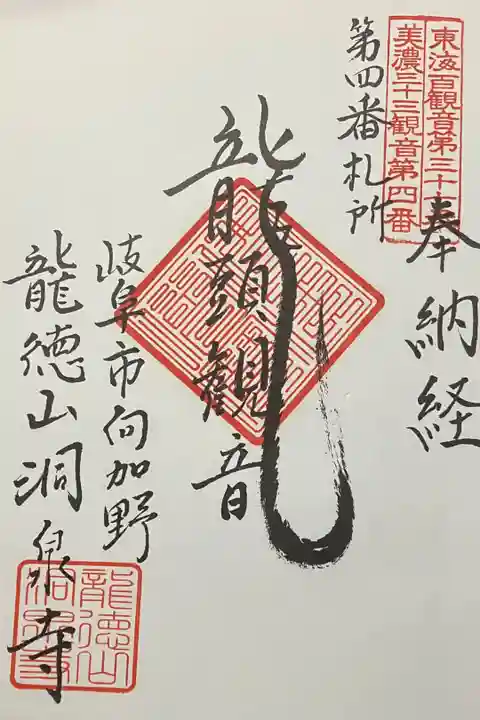 東海百観音第三十
美濃三十三観音第四番
奉納経
第四番札所
龍頭観音
岐阜市向加野
龍徳山洞泉寺
龍徳山
洞泉寺